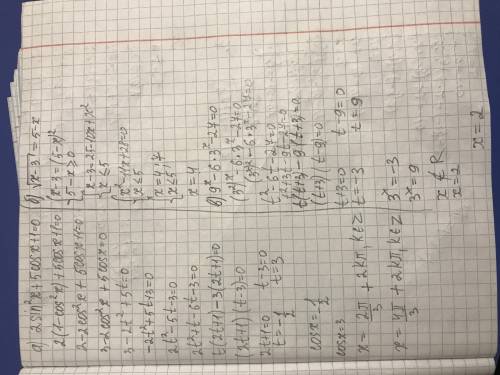 а) 2sin²x+5cosx+1=0
2(1-cos²x)+5cosx+1=0
2-2cos²x+5cosx+1=0
3-2cos²x+5cosx=0
3-2t²+5t=0
-2t²+5t+3=0
2t²-5t-3=0
2t²+t-6t-3=0
t(2t+1)-3(2t+1)=0
(2t+1)(t-3)=0
2t+1=0 t-3=0
t=-1/2 t=3
cosx=1/2
cosx=3
x=2π/3+2kπ, k∈Z
x=4π/3+2kπ, k∈Z
б) √x-3=5-x
{x-3=(5-x)²
5-x≥0
{x-3=25-10x+x²
x≤5
{x²-11x+28=0
x≤5
{x=4,7
x≤5
x=4
в) 9ˣ-6·3ˣ-27=0
(3²)ˣ-6·3ˣ-27=0
(3ˣ)²-6·3ˣ-27=0
t²-6t-27=0
t²+3t-9t-27=0
t(t+3)-9(t+3)=0
(t+3)(t-9)=0
t+3=0 t-9=0
t=-3 t=9
3ˣ=-3
3ˣ=9
x∉R
x=2
x=2